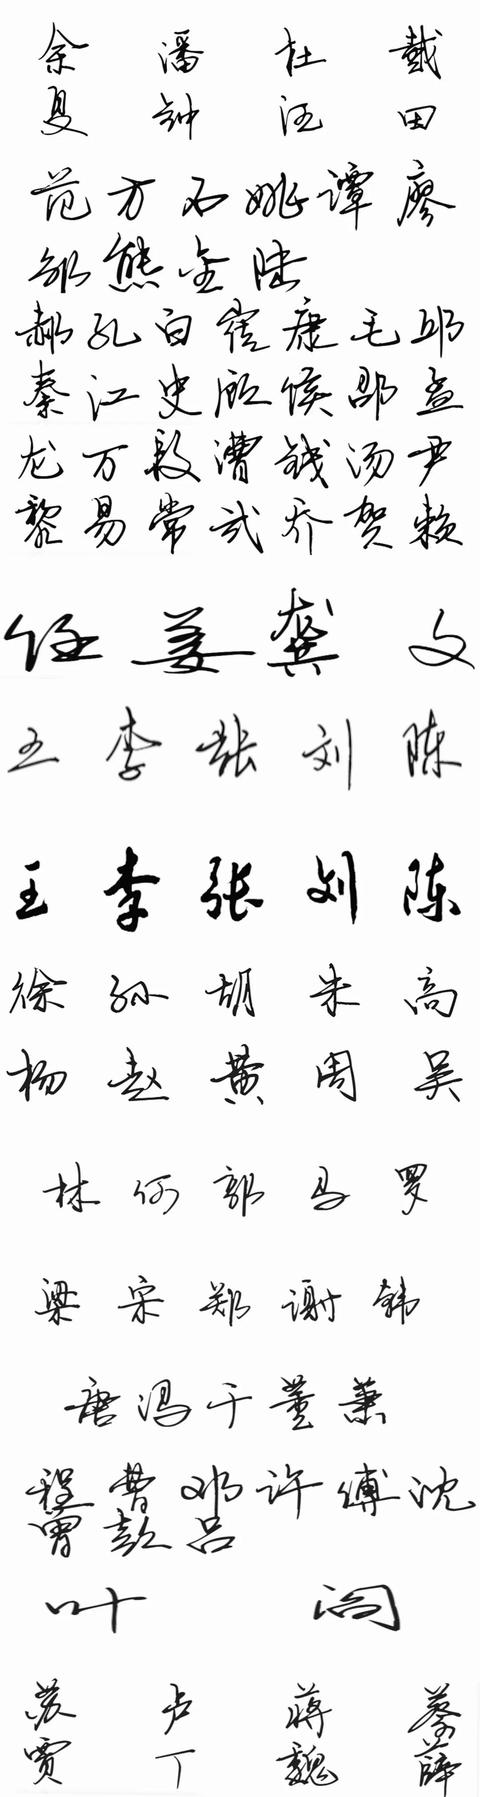 余 潘 杜 戴
夏 钟 汪 田
范 方 石 姚 谭 廖
邹 熊 金 陆
郝 孔 白 崔 康 毛 邱
秦 江 史 顾 侯 邵 孟
龙 万 段 漕 钱 汤 尹
黎 易 常 武 乔 贺 赖
任 姜 龚 文
王 李 张 刘 陈
王 李 张 刘 陈
徐 孙 胡 朱 高
杨 赵 黄 周 吴
林 何 郭 马 罗
梁 宋 郑 谢 韩
唐 冯 于 董 萧
程 曹 邓 许 傅 沈
曾 彭 吕
叶 阎
苏 卢 蒋 蔡
贾 丁 魏 薛